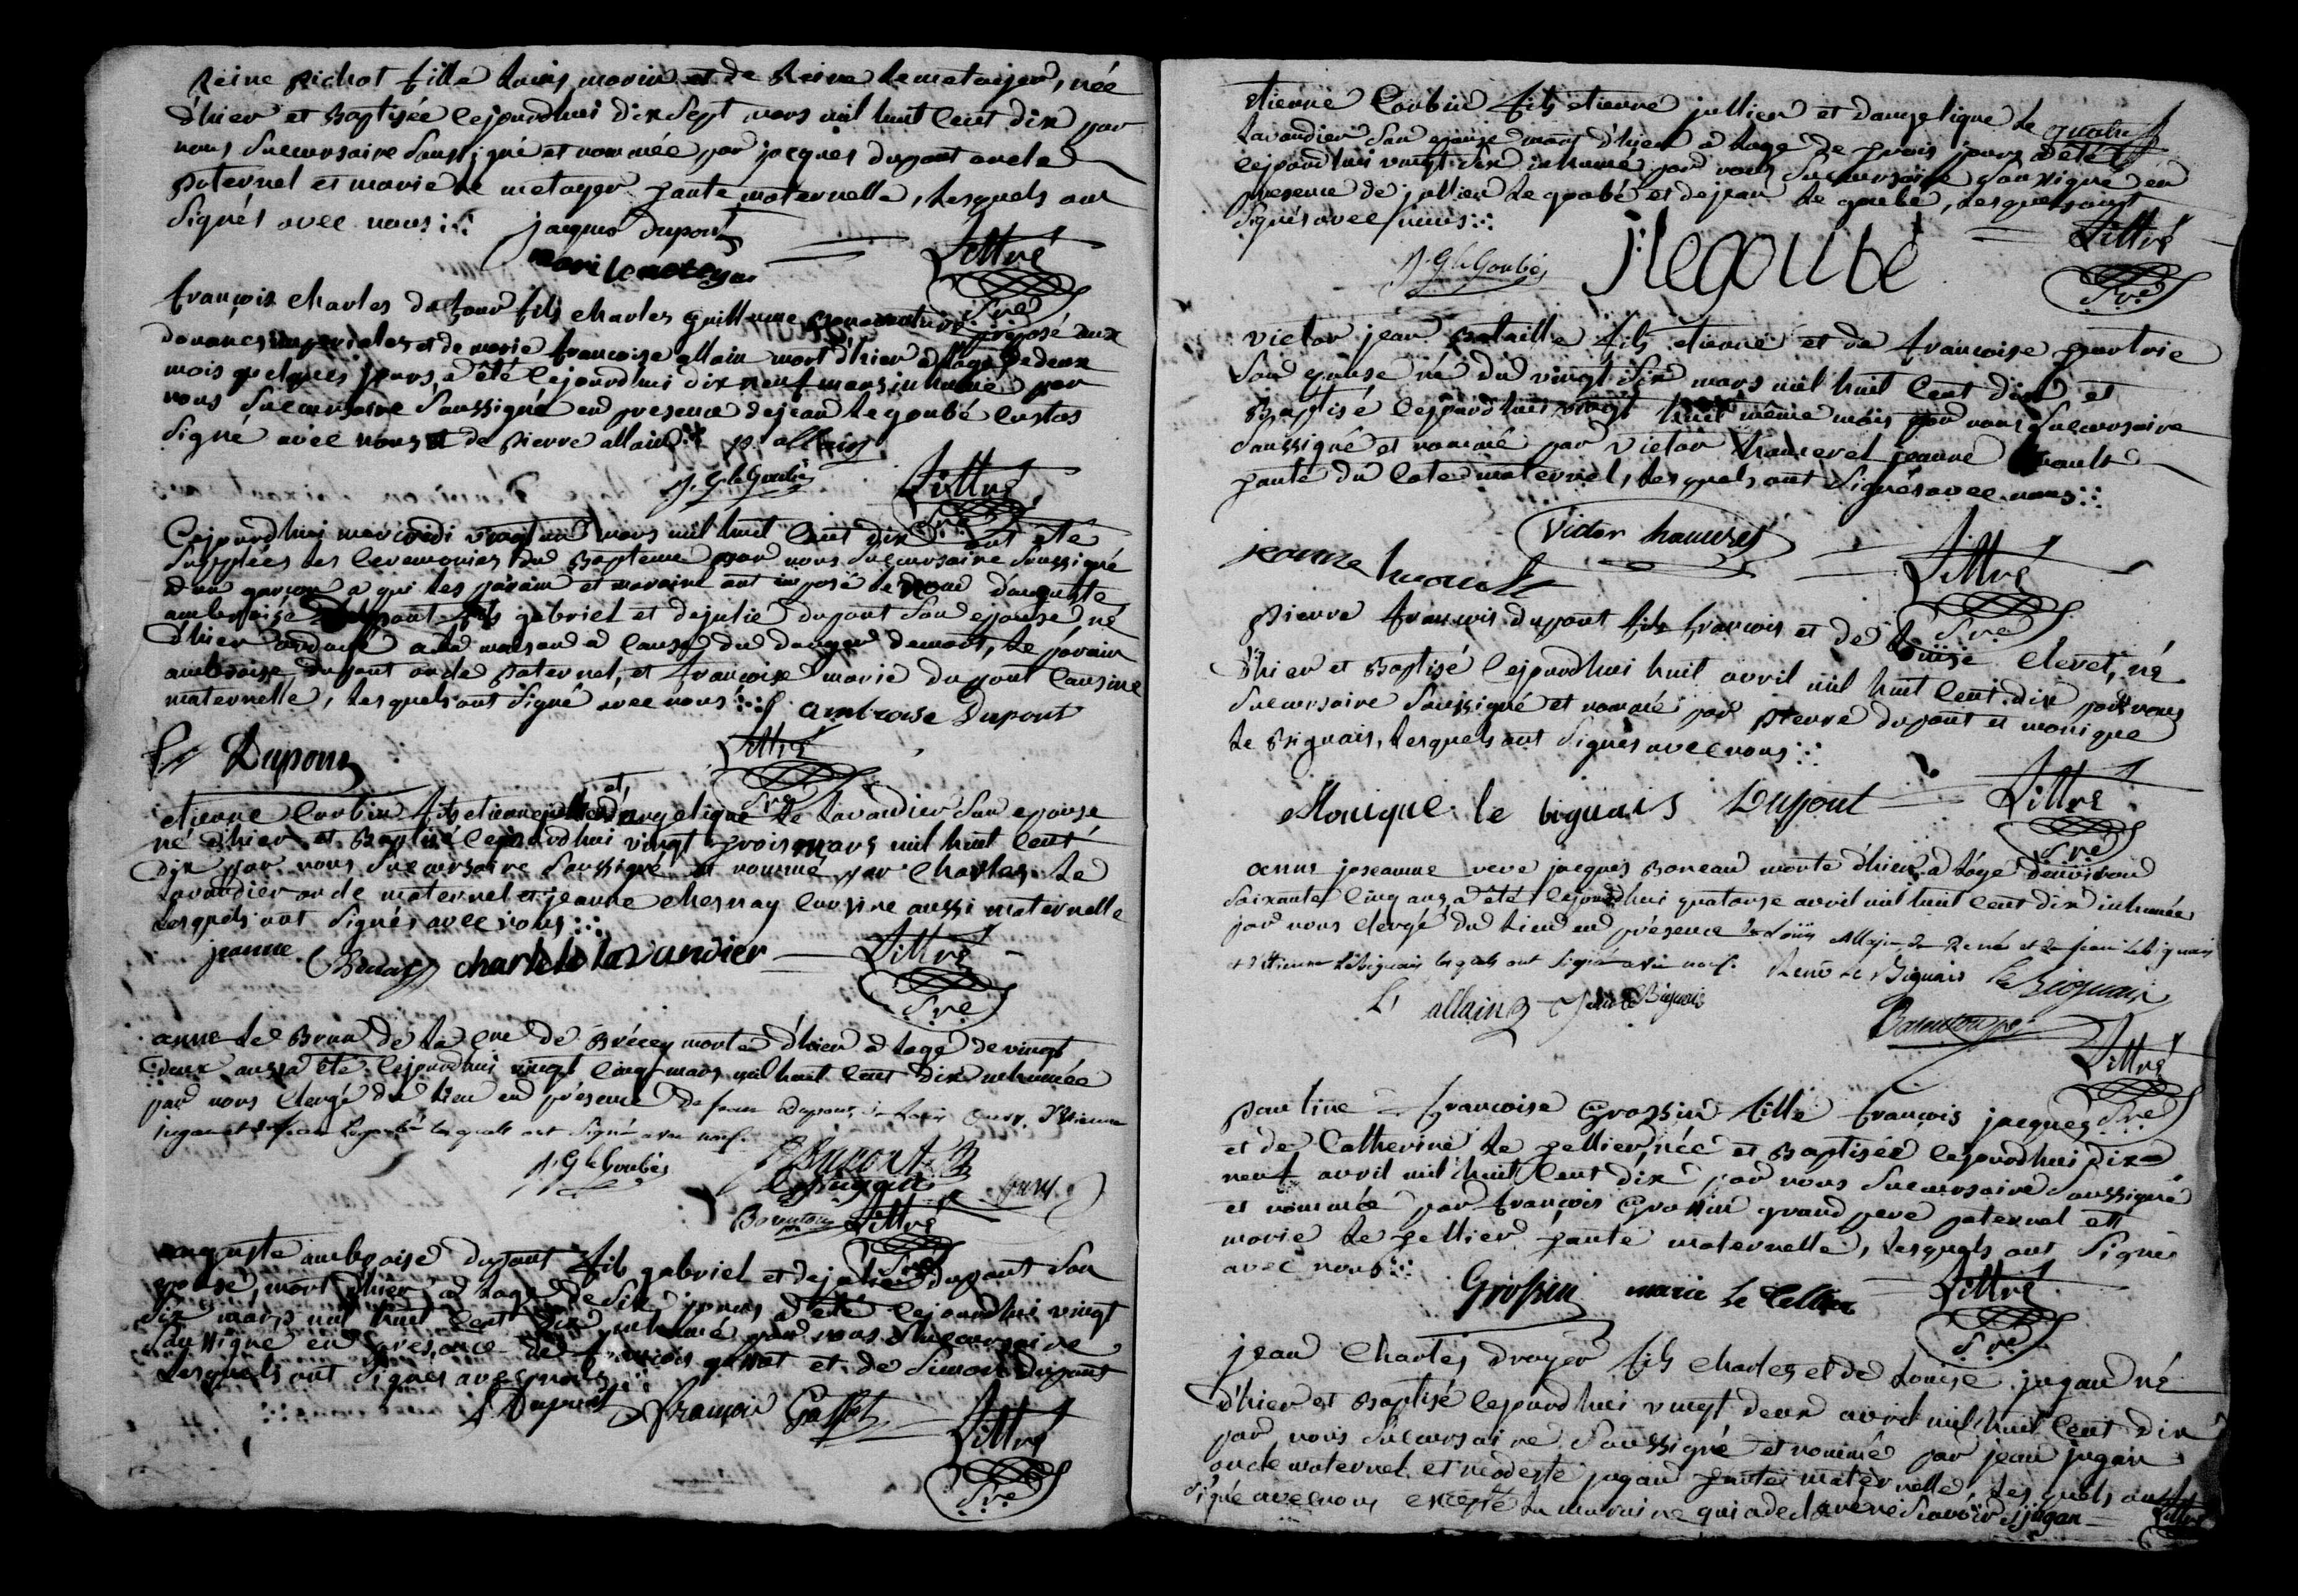 Reine pichot fille Louis marin et de Reine Le metayer, née
d'hier et Baptisée cejourdhui dix sept mars mil huit cent dix par
nous Succursaire Soussigné et nommée par jacques dupont oncle
paternel et marie Le metayer tante maternelle, Lesquels ont
Signés avec nous
jacques dupont
marie le metayer
Littré
Sre
françois charles fils charles guillaume préposé aux
douanes imperiales et de marie francoise allain mort d'hier a l'age de deux
mois quelques jours, a été cejourdhui dix neuf mars inhumé par
nous Succursaire Soussigné en presence de jean Le goubé custos
Signé avec nous et de pierre allain p. allain
J. G le Goubés
Littré
Sre
Cejourdhui mercredi vingt un mars mil huit cent dix ont été
Supplées les ceremonies du Bapteme par nous Succursaire Soussigné
a un garçon a qui les parain et maraine ont imposé le nom d'auguste
ambroise dupont fils gabriel et de julie dupont Son epouse, né
d'hier ondoyé a la maison a cause du danger de mort, Le parain
ambroise dupont oncle paternel, et francoise marie dupont cousine
maternelle, Lesquels ont Signé avec nous ambroise Dupont
Dupont
Littré
Sre
etienne Corbin fils etienne jullien et d'angelique Le Lavandier Son epouse
né d'hier et Baptisé cejourdhui vingt trois mars mil huit cent
dix par nous Succursaire Soussigné et nommé par charles Le
Lavandier oncle maternel et jeanne chesnay cousine aussi maternelle
Lesquels ont Signés avec nous
jeanne charle le lavandier
Littré
Sre
anne Le Brun de La Cne de Brécey morte d'hier a L'age de vingt
deux ans, a été cejourdhui vingt cinq mars mil huit cent dix inhumée
par nous Clergé du Lieu en présence de jean Dupont, de Louis d'Etienne
jugan et de jean Legoubé lesquels ont Signé avec nous.
J. G le Goubés
Dupont
Littré
Sre
auguste ambroise dupont fils gabriel et de julie dupont Son
epouse, mort d'hier, a L'age de Six jours a été cejourdhui vingt
Six mars mil huit cent dix inhumé par nous Succursaire
Soussigné en presence de françois gassot et de Simon dupont
Lesquels ont Signés avec nous
S Dupont françois Gassot
Littré
Sre
etienne Corbin fils etienne jullien et d'angelique Le
Lavandier Son epouse mort d'hier a L'age de trois jours a été
cejourdhui vingt six inhumé par nous Succursaire Soussigné en
presence de jullien Le goubé et de jean Le goubé, Lesquels ont
Signés avec nous
J. G le Goubés
j legoube
Littré
Sre
victor jean Bataille fils etienne et de francoise
Son epouse né du vingt Six mars mil huit cent dix et
Baptisé cejourdhui vingt huit même mois par nous Succursaire
Soussigné et nommé par victor et jeanne
tante du coté maternel, Lesquels ont Signés avec nous
Victor
jeanne
Littré
Sre
pierre francois dupont fils francois et de Louise Clevet, né
d'hier et Baptisé cejourdhui huit avril mil huit cent dix par nous
Succursaire Soussigné et nommé par pierre dupont et monique
Le Biguais, Lesquels ont Signés avec nous
Monique le biguais Dupont
Littré
Sre
anne veve jacques morte d'hier a L'age d'environ
Soixante cinq ans, a été cejourdhui quatorze avril mil huit cent dix inhumée
par nous clergé du Lieu en présence de Louis Allain, de René et de jean LeBiguais
et d'Etienne leBiguais lesquels ont Signé avec nous. René Le Biguais le Biguais
L allain jean le Biguais
Littré
Sre
pauline francoise Grossin fille françois jacques
et de Catherine Le pellier, née et Baptisée cejourdhui dix
neuf avril mil huit cent dix par nous Succursaire Soussigné
et nommée par françois Grossin grand pere paternel et
marie Le pellier tante maternelle, Lesquels ont Signés
avec nous
Grossin marie Le
Littré
Sre
jean Charles fils charles et de Louise jugan né
d'hier et Baptisé cejourdhui vingt deux avril mil huit cent dix
par nous Succursaire Soussigné et nommé par jean jugan
oncle maternel et modeste jugan tante maternelle, Lesquels ont
Signé avec nous excepté La maraine qui a declaré ne Scavoir j jugan
Littré